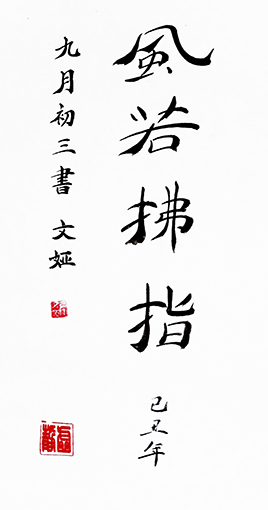 風若拂指
己丑年
九月初三書 文娅